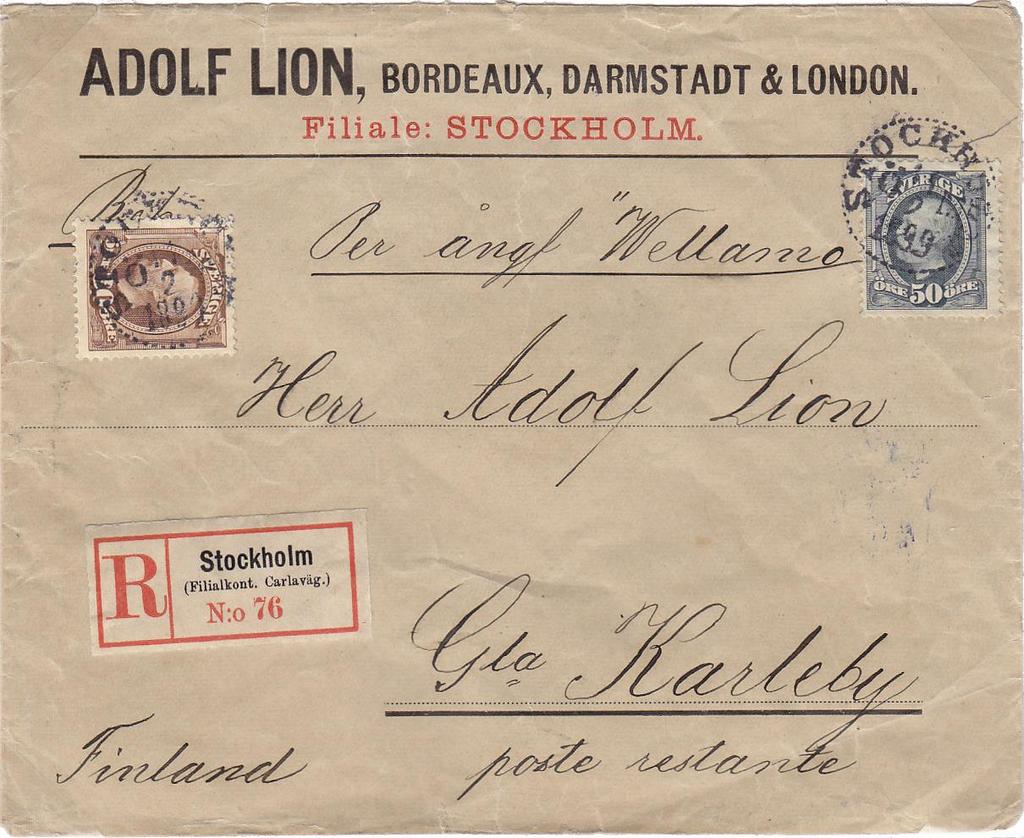 ADOLF LION, BORDEAUX, DARMSTADT & LONDON.
Filiale: STOCKHOLM.
STOCKH
SVERIGE
ÖRE 50 ÖRE
SVERIGE
2
Per ångf "Wellamo
Herr Adolf Lion
R
Stockholm
(Filialkont. Carlaväg.)
N:o 76
Gla Karleby
Finland
poste restante